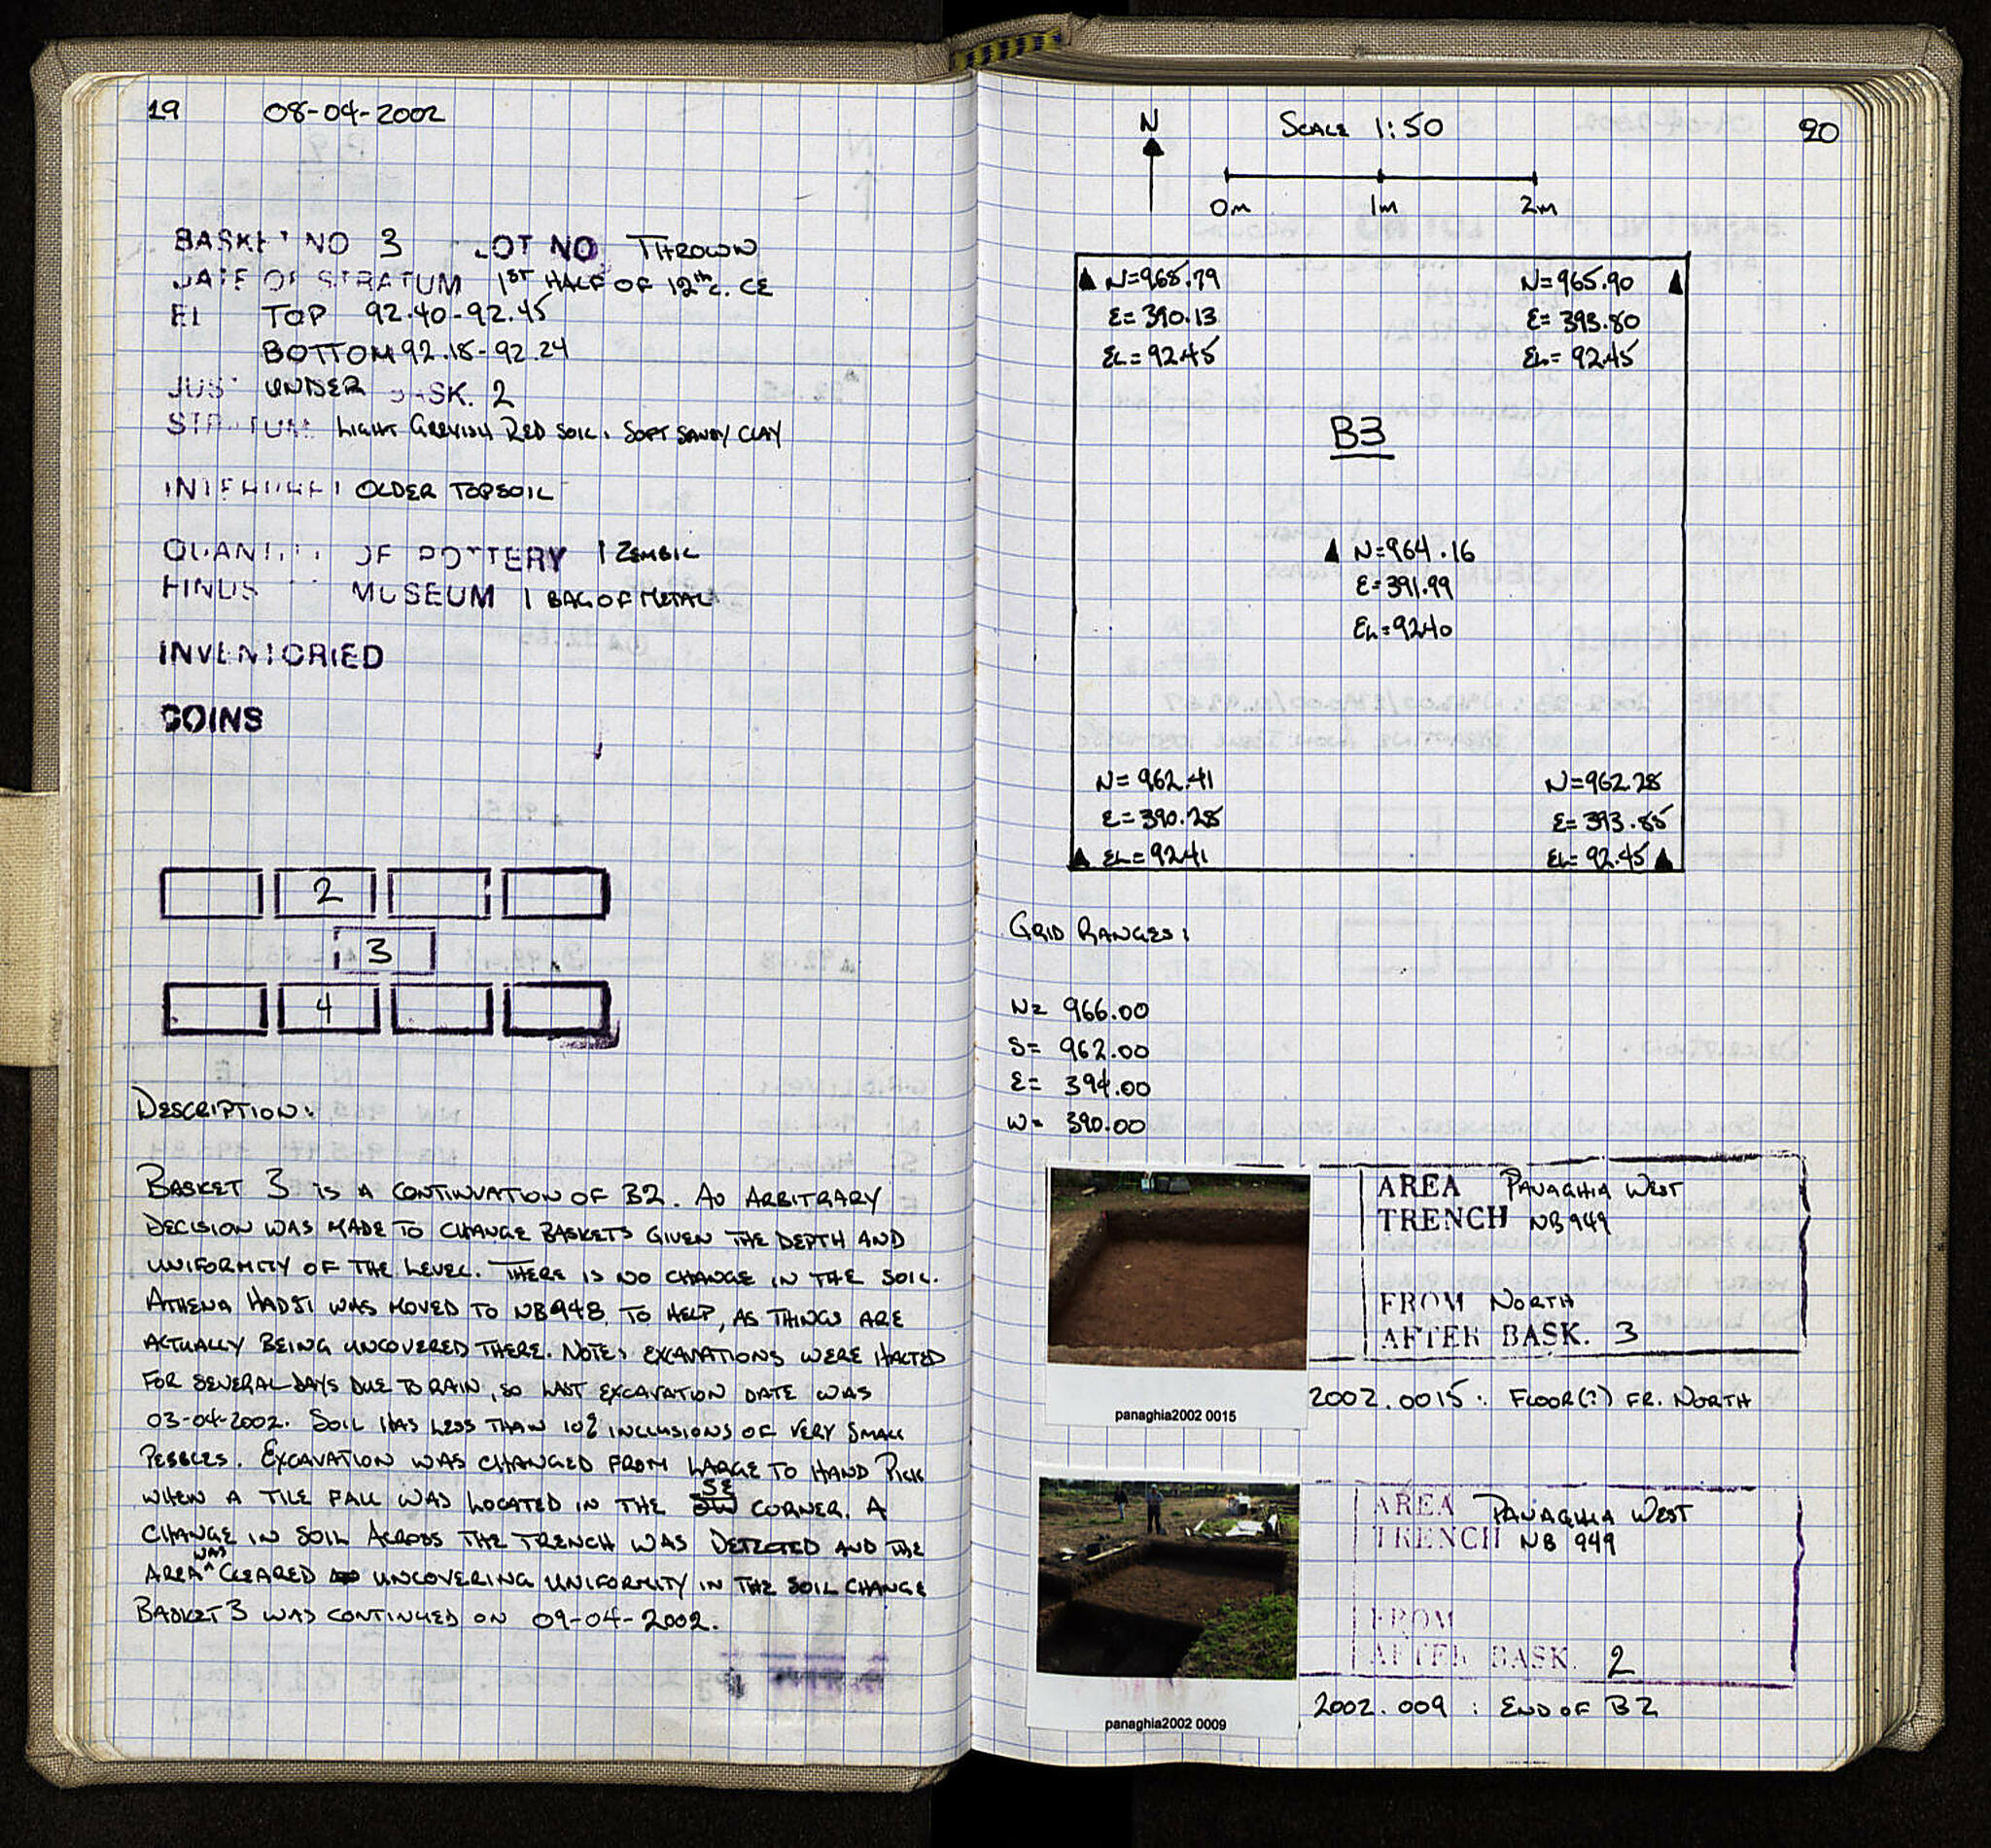 19 08-04-2002
BASKET NO 3 LOT NO THROWN
DATE OF STRATUM 1ST HALF OF 12th C. CE
El TOP 92.40-92.45
BOTTOM 92.18-92.24
JUST UNDER BASK. 2
STRATUM LIGHT GREYISH RED SOIL. SOFT SANDY CLAY
INTERPRET OLDER TOPSOIL
QUANTITY OF POTTERY 1 ZEMBIL
FINDS MUSEUM 1 BAG OF METAL
INVENTORIED
COINS
2
3
4
DESCRIPTION:
BASKET 3 IS A CONTINUATION OF B2. AN ARBITRARY
DECISION WAS MADE TO CHANGE BASKETS GIVEN THE DEPTH AND
UNIFORMITY OF THE LEVEL. THERE IS NO CHANGE IN THE SOIL.
ATHENA HADJI WAS MOVED TO NB948, TO HELP, AS THINGS ARE
ACTUALLY BEING UNCOVERED THERE. NOTE: EXCAVATIONS WERE HALTED
FOR SEVERAL DAYS DUE TO RAIN, SO LAST EXCAVATION DATE WAS
03-04-2002. SOIL HAS LESS THAN 10% INCLUSIONS OF VERY SMALL
PEBBLES. EXCAVATION WAS CHANGED FROM LARGE TO HAND PICK
WHEN A TILE FALL WAS LOCATED IN THE SE CORNER. A
CHANGE IN SOIL ACROSS THE TRENCH WAS DETECTED AND THE
AREA WAS CLEARED UNCOVERING UNIFORMITY IN THE SOIL CHANGE
BASKET 3 WAS CONTINUED ON 09-04-2002.
N SCALE 1:50 20
0m 1m 2m
N=965.79 N=965.90
E=390.13 E=393.80
EL=92.45 EL=92.45
B3
N=964.16
E=391.99
EL=92.40
N=962.41 N=962.28
E=390.28 E=393.85
EL=92.41 EL=92.45
GRID RANGES:
N= 966.00
S= 962.00
E= 394.00
W= 390.00
AREA PANAGHIA WEST
TRENCH NB 949
FROM NORTH
AFTER BASK. 3
2002.0015: FLOOR(?) FR. NORTH
panaghia2002 0015
AREA PANAGHIA WEST
TRENCH NB 949
FROM
AFTER BASK. 2
2002.009 : END OF B2
panaghia2002 0009